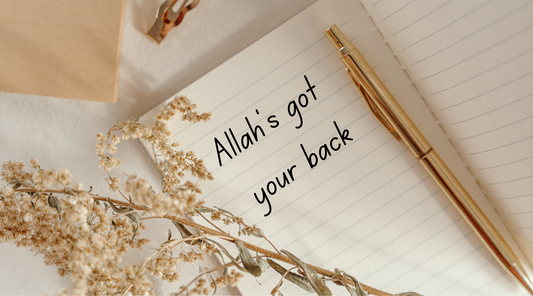 Allah's got
your back